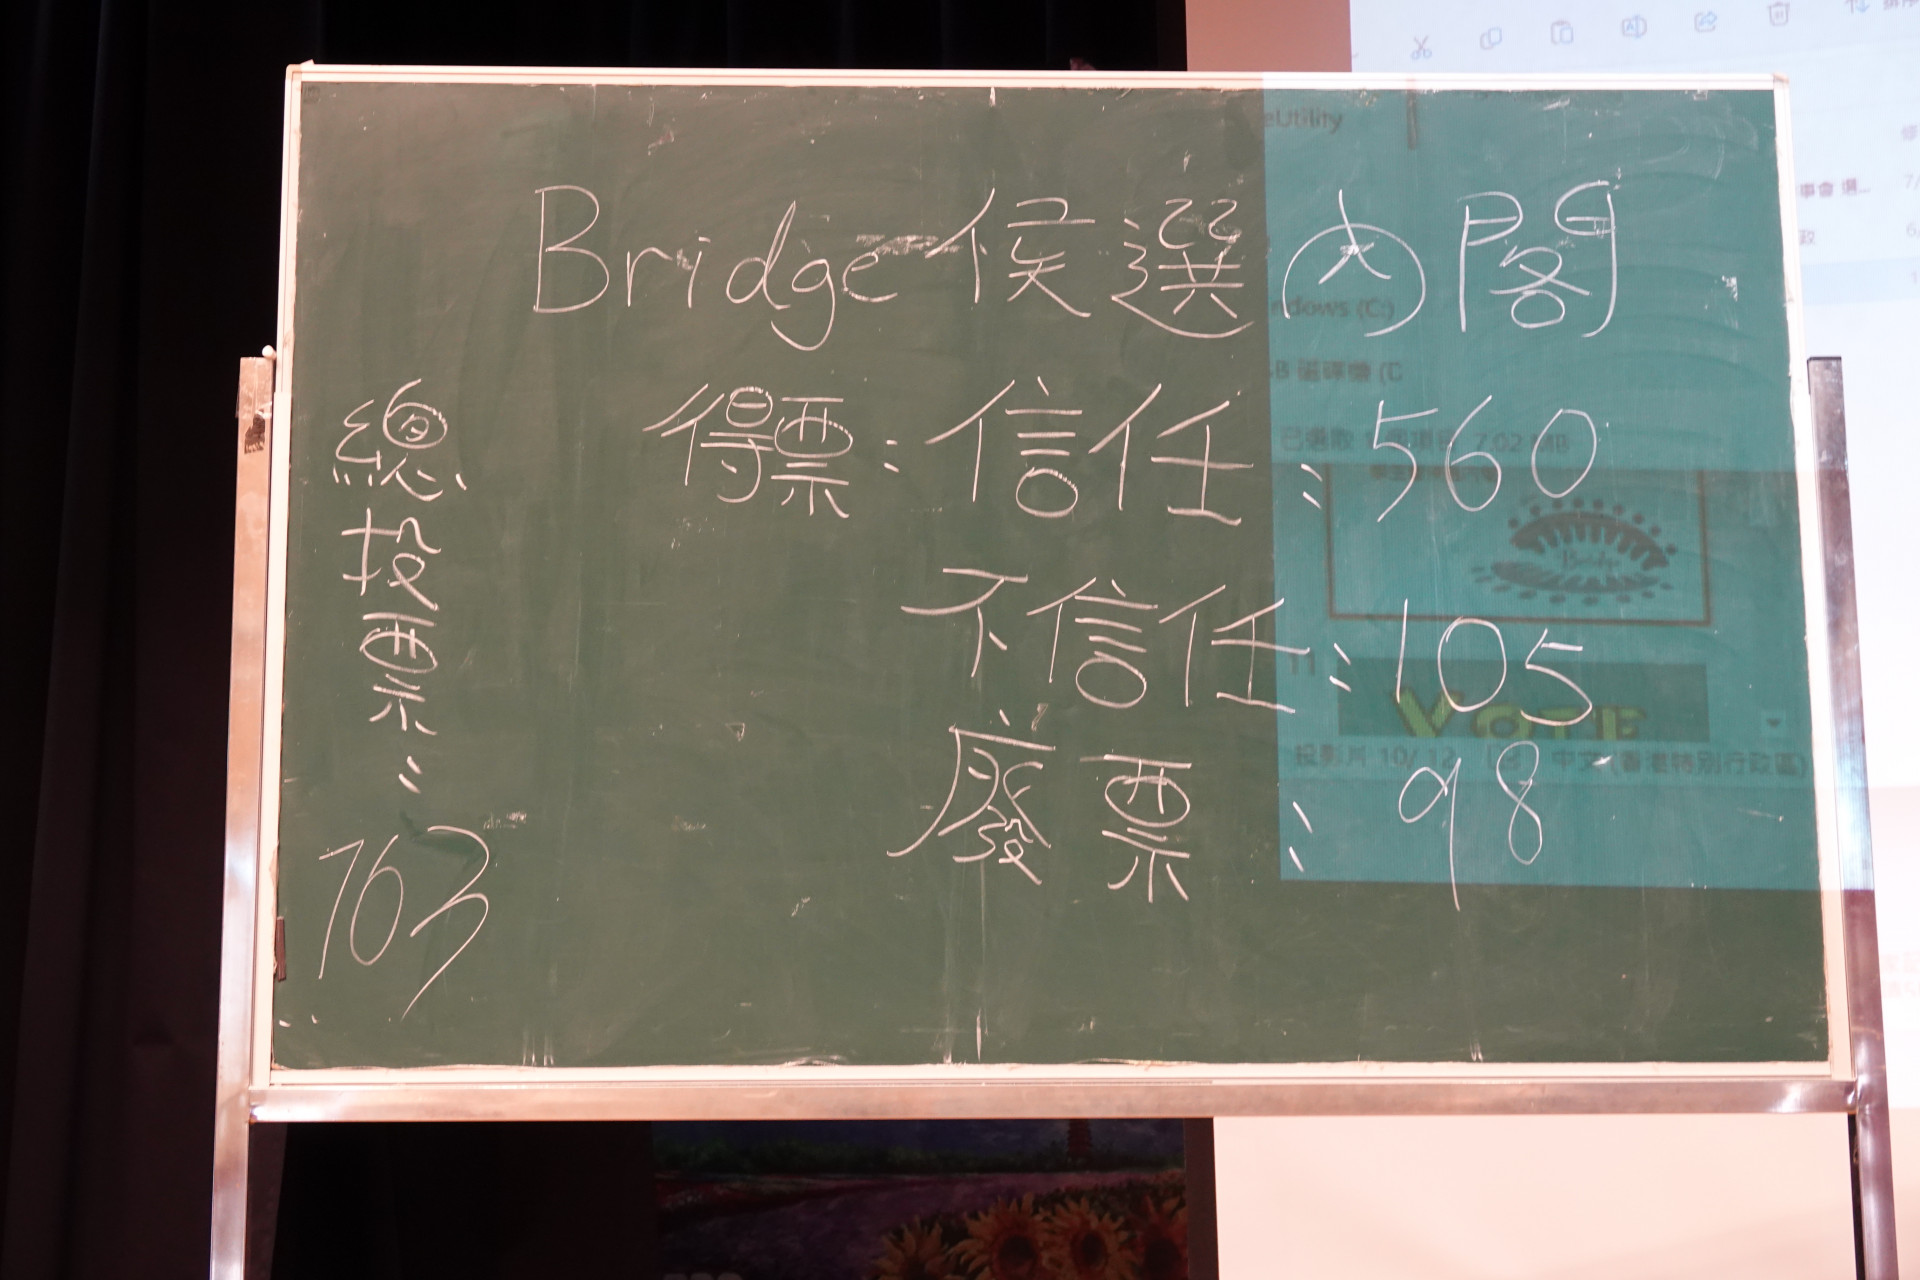 Bridge候選內閣
得票：信任：560
不信任：105
廢票：98
總投票：
763
eUtility
ndows (C:)
7.02 MB
Bridge
VOTE
投影片 10/ 12
中文 (香港特別行政區)